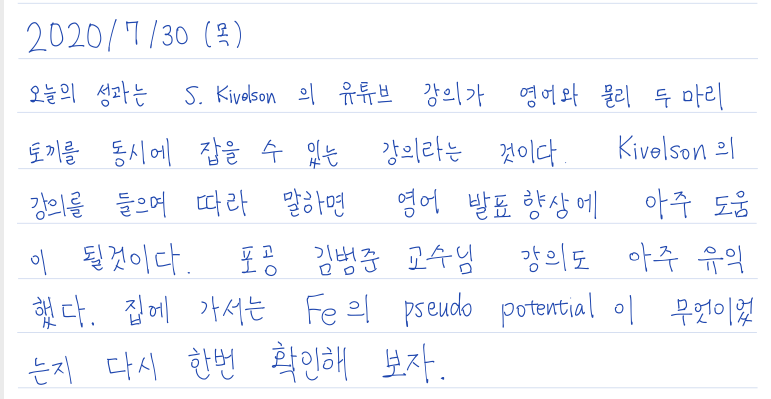 2020/7/30 (목)
오늘의 성과는 S. Kivelson 의 유튜브 강의가 영어와 물리 두 마리
토끼를 동시에 잡을 수 있는 강의라는 것이다. Kivelson 의
강의를 들으며 따라 말하면 영어 발표 향상에 아주 도움
이 될것이다. 포공 김범준 교수님 강의도 아주 유익
했다. 집에 가서는 Fe의 pseudo potential 이 무엇이었
는지 다시 한번 확인해 보자.